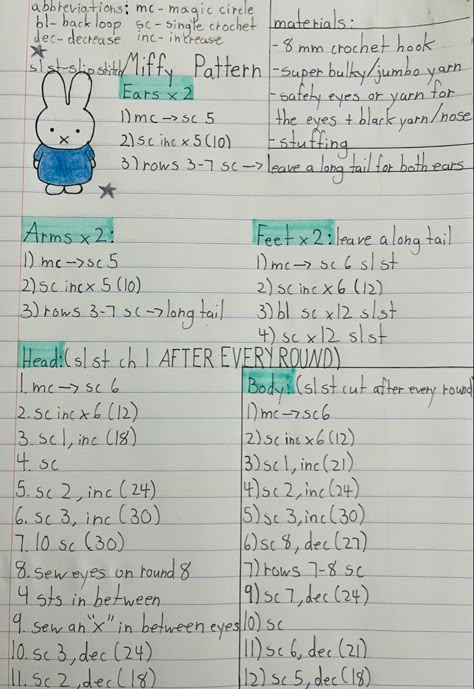 abbreviations: mc - magic circle
bl - back loop sc - single crochet
dec - decrease inc - increase
sl st - slip stitch
Miffy Pattern
materials:
- 8 mm crochet hook
- super bulky/jumbo yarn
- safety eyes or yarn for
the eyes + black yarn/nose
- stuffing
Ears x 2
1) mc → sc 5
2) sc inc x 5 (10)
3) rows 3-7 sc → leave a long tail for both ears
Arms x 2:
1) mc → sc 5
2) sc inc x 5 (10)
3) rows 3-7 sc → long tail
Feet x 2: leave a long tail
1) mc → sc 6 sl st
2) sc inc x 6 (12)
3) bl sc x12 sl st
4) sc x12 sl st
Head: (sl st ch 1 AFTER EVERY ROUND)
1. mc → sc 6
2. sc inc x 6 (12)
3. sc 1, inc (18)
4. sc
5. sc 2, inc (24)
6. sc 3, inc (30)
7. 10 sc (30)
8. sew eyes on round 8
4 sts in between
9. sew an "x" in between eyes
10. sc 3, dec (24)
11. sc 2, dec (18)
Body: (sl st cut after every round)
1) mc → sc 6
2) sc inc x 6 (12)
3) sc 1, inc (21)
4) sc 2, inc (24)
5) sc 3, inc (30)
6) sc 8, dec (27)
7) rows 7-8 sc
9) sc 7, dec (24)
10) sc
11) sc 6, dec (21)
12) sc 5, dec (18)